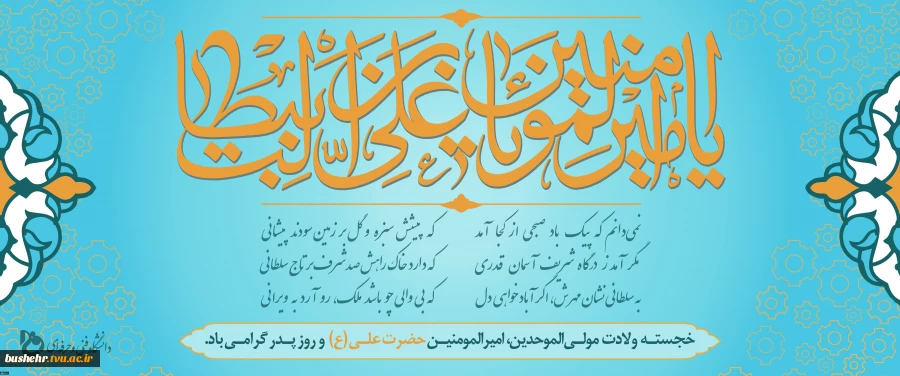 یا امیرالمومنین علی ابن ابیطالب
نمی‌دانم که پیک باد صبحی از کجا آمد که پیشش سبزه و گل بر زمین سودند پیشانی
مگر آمد ز درگاه شریف آسمان قدری که دارد خاک راهش صد شرف بر تاج سلطانی
به سلطانی نشان مهرش، اگر آباد خواهی دل که بی والی چو باشد ملک، رو آرد به ویرانی
خجسته ولادت مولی‌الموحدین، امیرالمومنین حضرت علی (ع) و روز پدر گرامی باد.
دانشگاه فنی و حرفه‌ای
bushehr.tvu.ac.ir